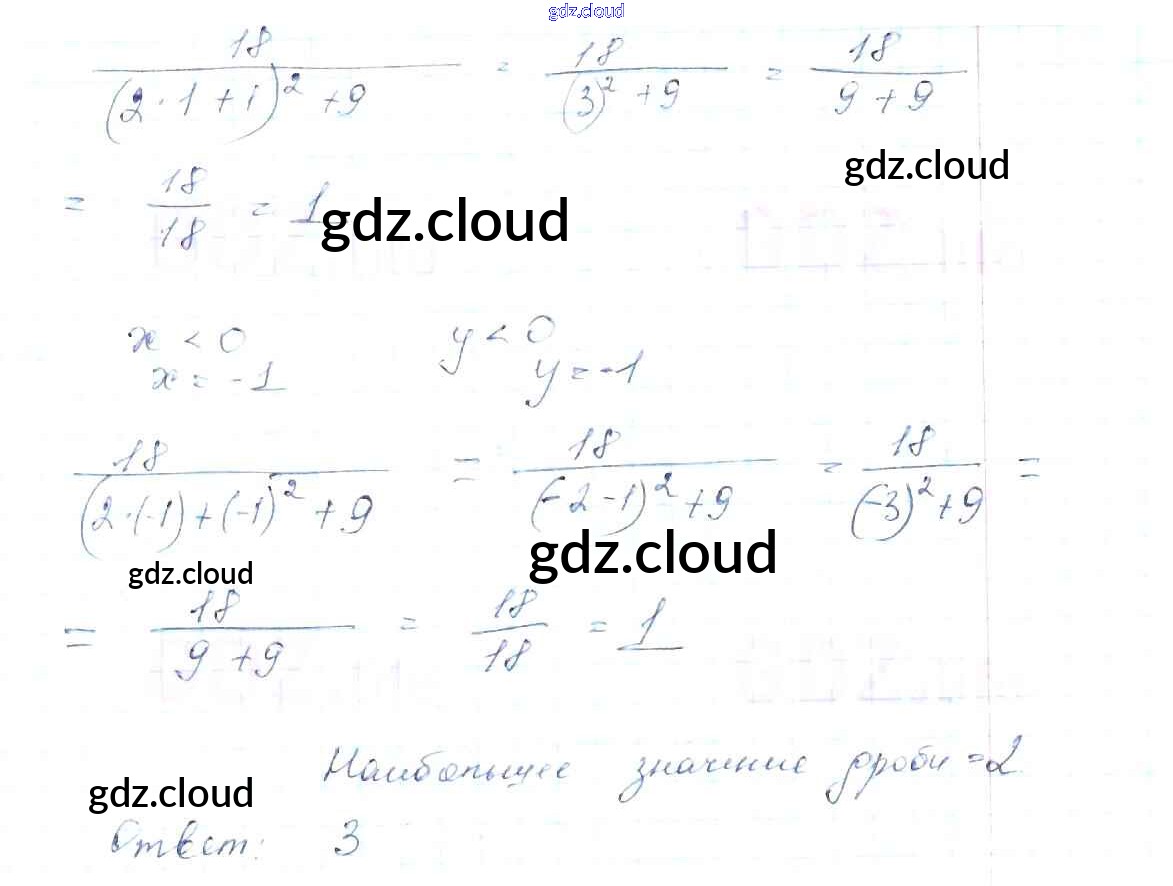 gdz.cloud
18 / (2 · 1 + 1)² + 9 = 18 / (3)² + 9 = 18 / 9 + 9
gdz.cloud
= 18 / 18 = 1
gdz.cloud
x < 0 y < 0
x = -1 y = -1
18 / (2·(-1) + (-1))² + 9 = 18 / (-2 - 1)² + 9 = 18 / (-3)² + 9 =
gdz.cloud
gdz.cloud
= 18 / 9 + 9 = 18 / 18 = 1
Наибольшее значение дроби = 2
gdz.cloud
Ответ: 3